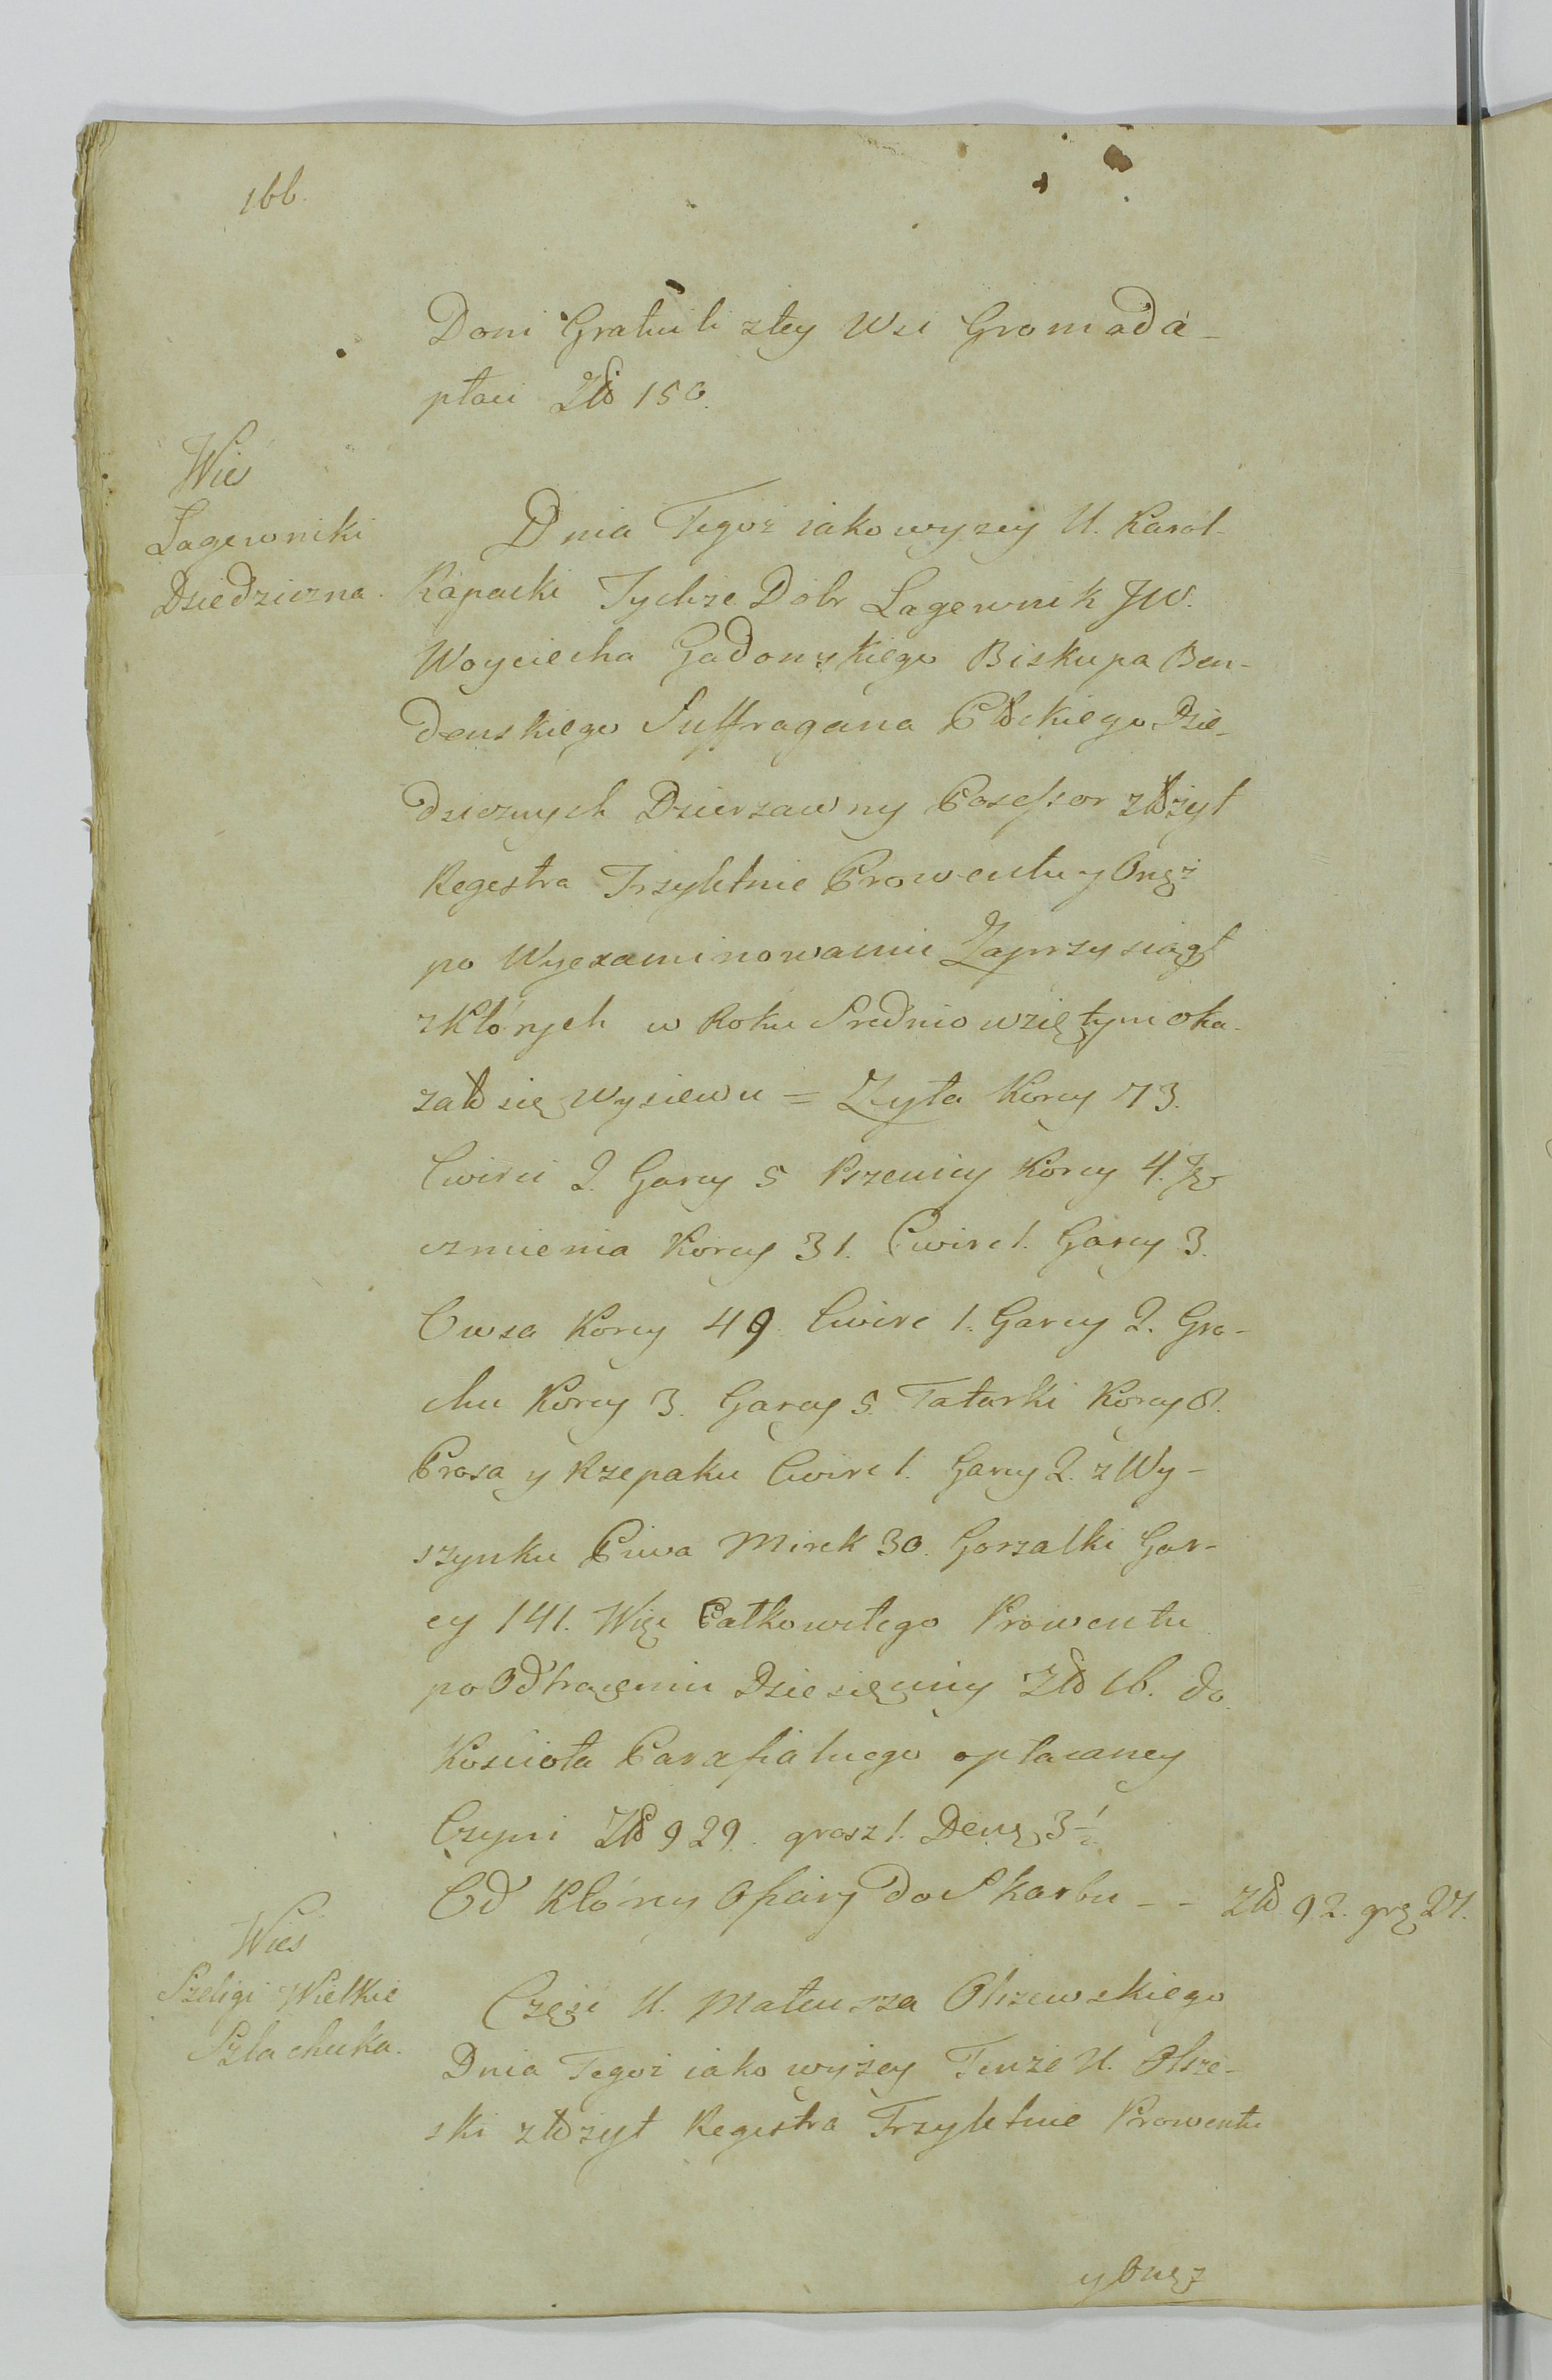 166.
Doni Gratuiti z tey Wsi Gromada
płaci Złł 150.
Wies
Łagewniki
Dziedziczna.
Dnia Tegoż iako wyzey U. Karol
Rapacki Tychże Dobr Łagewnik JW.
Woyciecha Gadomskiego Biskupa Ben-
denskiego Suffragana Płockiego Dzie-
dzicznych Dzierzawny Possessor złożył
Regestra Trzyletnie Prowentu y Onęż
po Wyexaminowaniu Zaprzysiągł
z Których w Roku Srednio wziętym oka-
zało się wysiewu = Zyta Korcy 73.
Cwierci 2. Garcy 5 Pszenicy Korcy 4. Ję-
czmienia Korcy 31. Cwierc 1. Garcy 3.
Owsa Korcy 49. Cwierc 1. Garcy 2. Gro-
chu Korcy 3. Garcy 5. Tatarki Korcy 8.
Prosa y Rzepaku Cwierc 1. Garcy 2. z Wy-
szynku Piwa Mirek 30. Gorzalki Gar-
cy 141. Więc Całkowitego Prowentu
po Odtrąceniu Dziesięciny Złł 16. do
Koscioła Parafialnego opłacaney
Czyni Złł 929. grosz 1. Deng 3½
Od Którey Ofiary do Skarbu - - Złł 92. grg 27.
Wies
Szeligi Wielkie
Szlachecka.
Częsc U. Mateusza Olszewskiego
Dnia Tegoż iako wyżey Tenże U. Olsze-
ski złożył Regestra Trzyletnie Prowentu
y Onęż